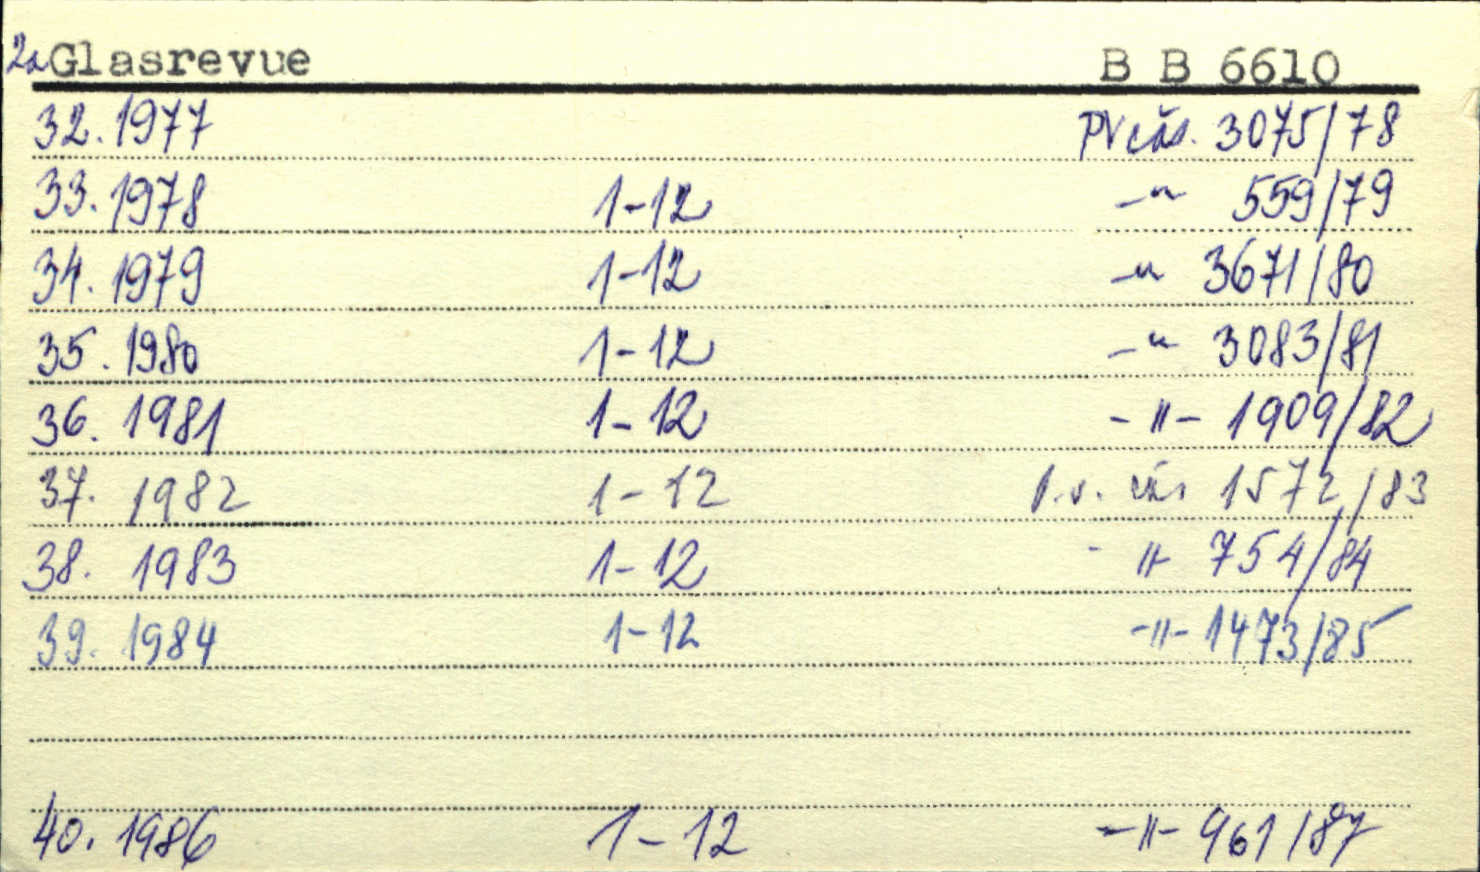 2a Glasrevue B B 6610
32. 1977 PV čás. 3075/78
33. 1978 1-12 -"- 559/79
34. 1979 1-12 -"- 3671/80
35. 1980 1-12 -"- 3083/81
36. 1981 1-12 -"- 1909/82
37. 1982 1-12 p.v. čás 1572/83
38. 1983 1-12 -"- 754/84
39. 1984 1-12 -"- 1473/85
40. 1986 1-12 -"- 961/87